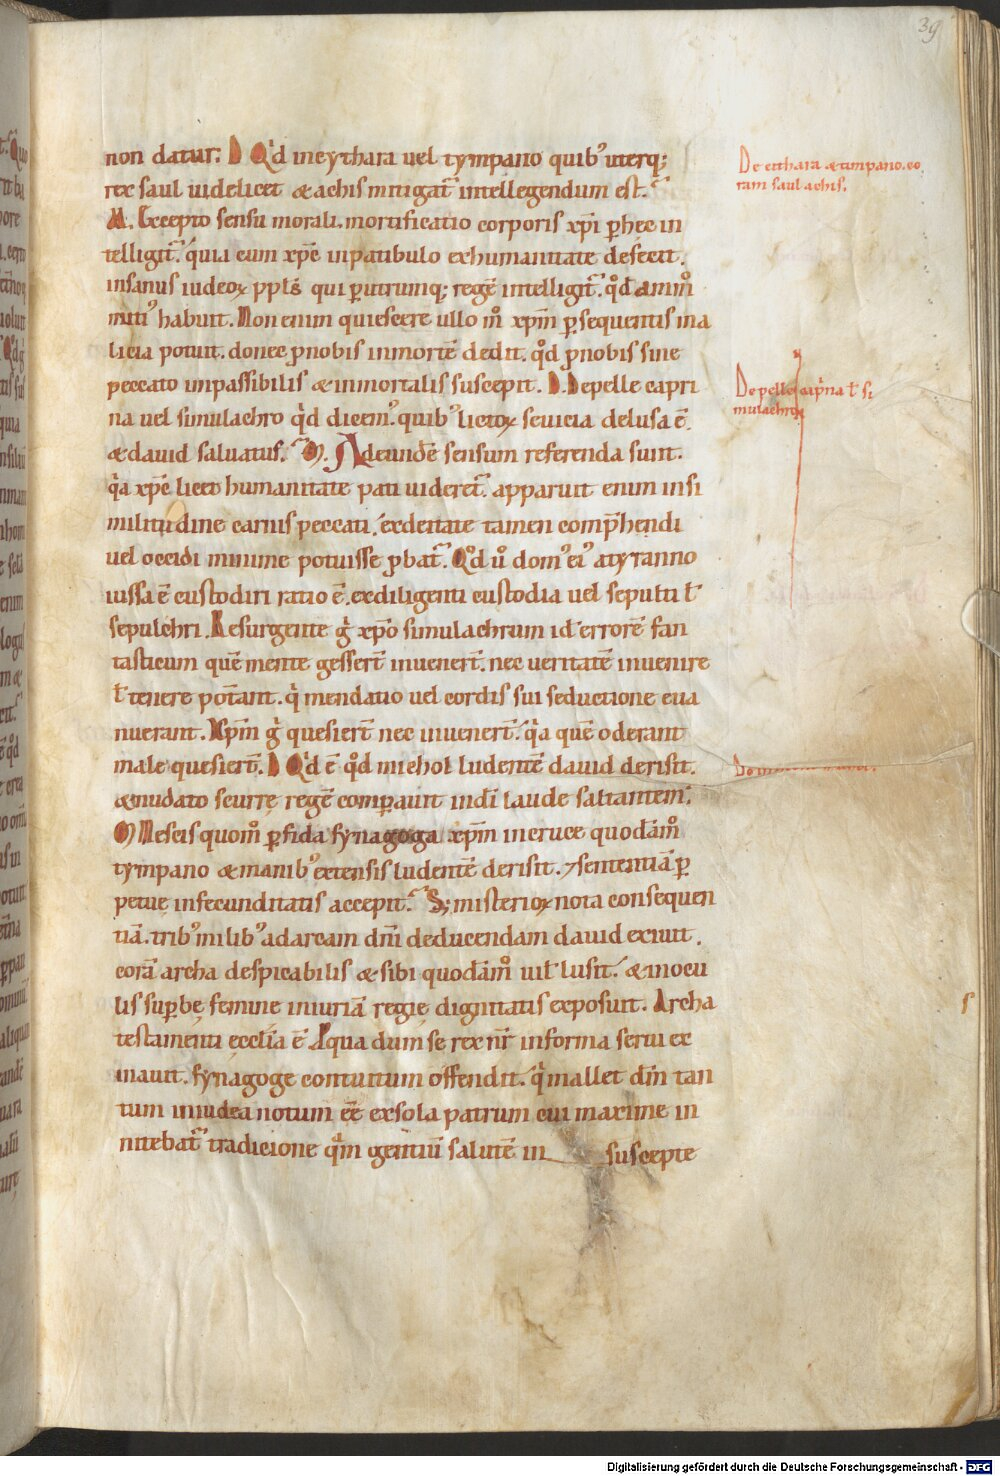 39
non datur. D Qd in cythara uel tympano quib' uterq;
De cithara & timpano. co
ram saul achis.
rex saul uidelicet & achis mitigat̄ intellegendum est.
M. Accepto sensu morali. mortificatio corporis xp̄i p̱ hęc in
telligit̄. quia cum xp̄c in patibulo ex humanitate defecit.
insanus iudeoꝝ ppl̄s qui p̱ utrumq; regē intelligit̄. qd animū
miti' habuit. Non enim quiescere ullo m̊ xp̄m p̱sequentis ma
licia potuit. donec ꝓ nobis in mortē dedit. qd ꝓ nobis sine
peccato impassibilis & inmortalis suscepit. D. De pelle capri
De pelle cap̄na ł si
mulachro
na uel simulachro qd dicem'. quib' lictoꝝ seuicia delusa ē.
& dauid saluatus. M. Ad eundē sensum referenda sunt.
qa xp̄c licet humanitate pati uideret̄. apparuit enim in si
militudine carnis peccati. ex deitate tamen comp̄hendi
uel occidi minime potuisse ꝓbat̄. Qd ū dom' ei' a tyranno
iussa ē custodiri ratio ē. ex diligenti custodia uel sepulti ł
sepulchri. Resurgente g̊ xp̄o simulachrum id errorē fan
tasticum quē mente gessert̄ inuenert̄. nec ueritatē inuenire
ł tenere pot̄ant. q̇ mendatio uel cordis sui seductione eua
nuerant. Xp̄m g̊ quesiert̄ nec inuenert̄. qa quē oderant
male quesiert̄. D Qd ē qd michol ludentē dauid derisit.
& nudato scurrę regē comparauit in dn̄i laude saltantem.
M Nescis quom̊ p̱fida synagoga xp̄m in cruce quodām̊
tympano & manib' extensis ludentē derisit. ⁊ sententiā p̱
petuę infecunditatis accepit. S; misterioꝝ nota consequen
tiā. trib' milib' ad arcam dn̄i deducendam dauid exiuit.
corā archa despicabilis & sibi quodām̊ uil' lusit. & in ocu
lis sup̱bę feminę iniuriā regię dignitatis exposuit. Archa
testamenti ęcclīa ē. A qua dum se rex nr̄ in forma serui ex
inauit. synagogę contuitum offendit. q̇ mallet dn̄m tan
tum in iudea notum ēē ex sola patrum cui maxime in
nitebat̄ tradicione qm̄ gentiū salutē in suscepte